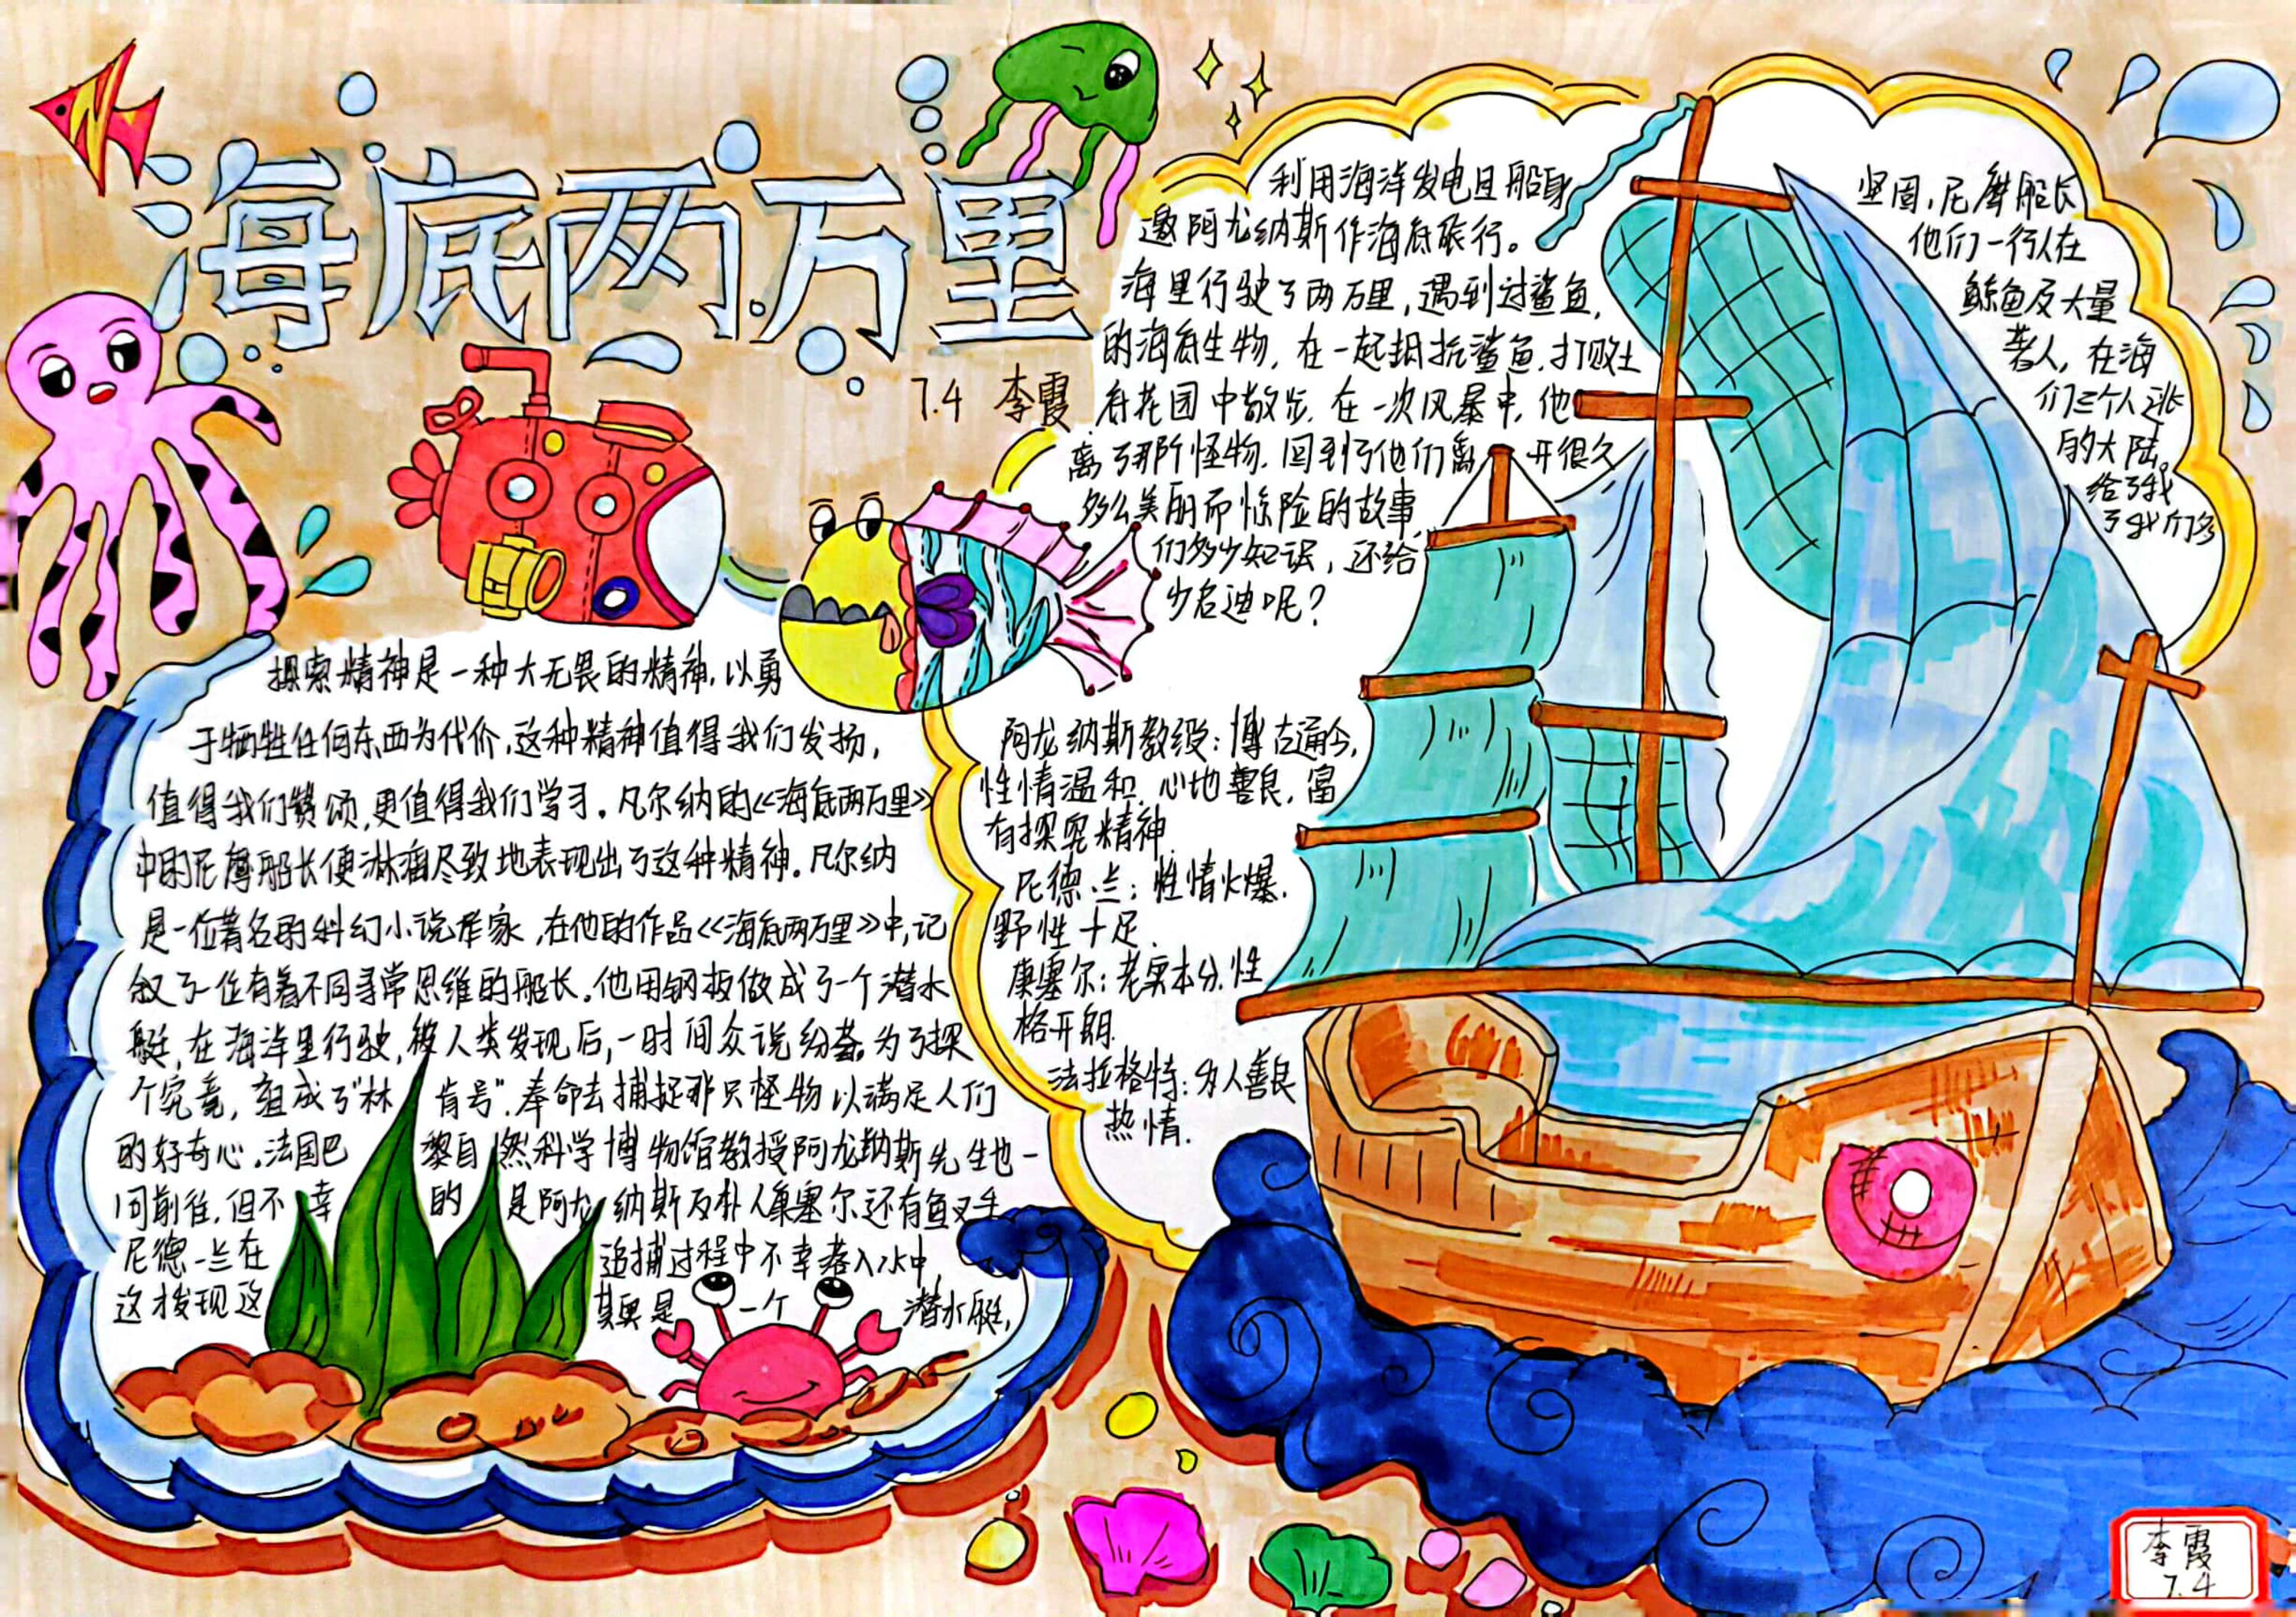 海底两万里
7.4 李霞
探索精神是一种大无畏的精神,以勇
于牺牲任何东西为代价,这种精神值得我们发扬,
值得我们赞颂,更值得我们学习。凡尔纳的《海底两万里》
中的尼摩船长便淋漓尽致地表现出了这种精神。凡尔纳
是一位著名的科幻小说作家,在他的作品《海底两万里》中,记
叙了一位有着不同寻常思维的船长。他用钢板做成了一个潜水
艇,在海洋里行驶,被人类发现后,一时间众说纷纭。为了探
个究竟,组成了"林肯号",奉命去捕捉那只怪物以满足人们
的好奇心。法国巴黎自然科学博物馆教授阿龙纳斯先生也一
同前往,但不幸的是阿龙纳斯及朴人康塞尔还有鱼叉手
尼德一兰在追捕过程中不幸落入水中
这才发现这其奥是一个潜水艇,
利用海洋发电且船身坚固,尼摩船长
邀阿龙纳斯作海底旅行。他们一行人在
海里行驶了两万里,遇到过鲨鱼,鲸鱼及大量
的海底生物,在一起抵抗鲨鱼,打败土著人,在海
底花园中散步,在一次风暴中,他们三个人逃
离了那阶怪物,回到了他们离开很久的大陆。
多么美丽而惊险的故事,给了我
们多少知识,还给了我们多
少启迪呢?
阿龙纳斯教授:博古通今,
性情温和,心地善良,富
有探究精神.
尼德·兰:性情火爆.
野性十足.
康塞尔:老实本分,性
格开朗.
法拉格特:为人善良
热情.
李霞
7.4